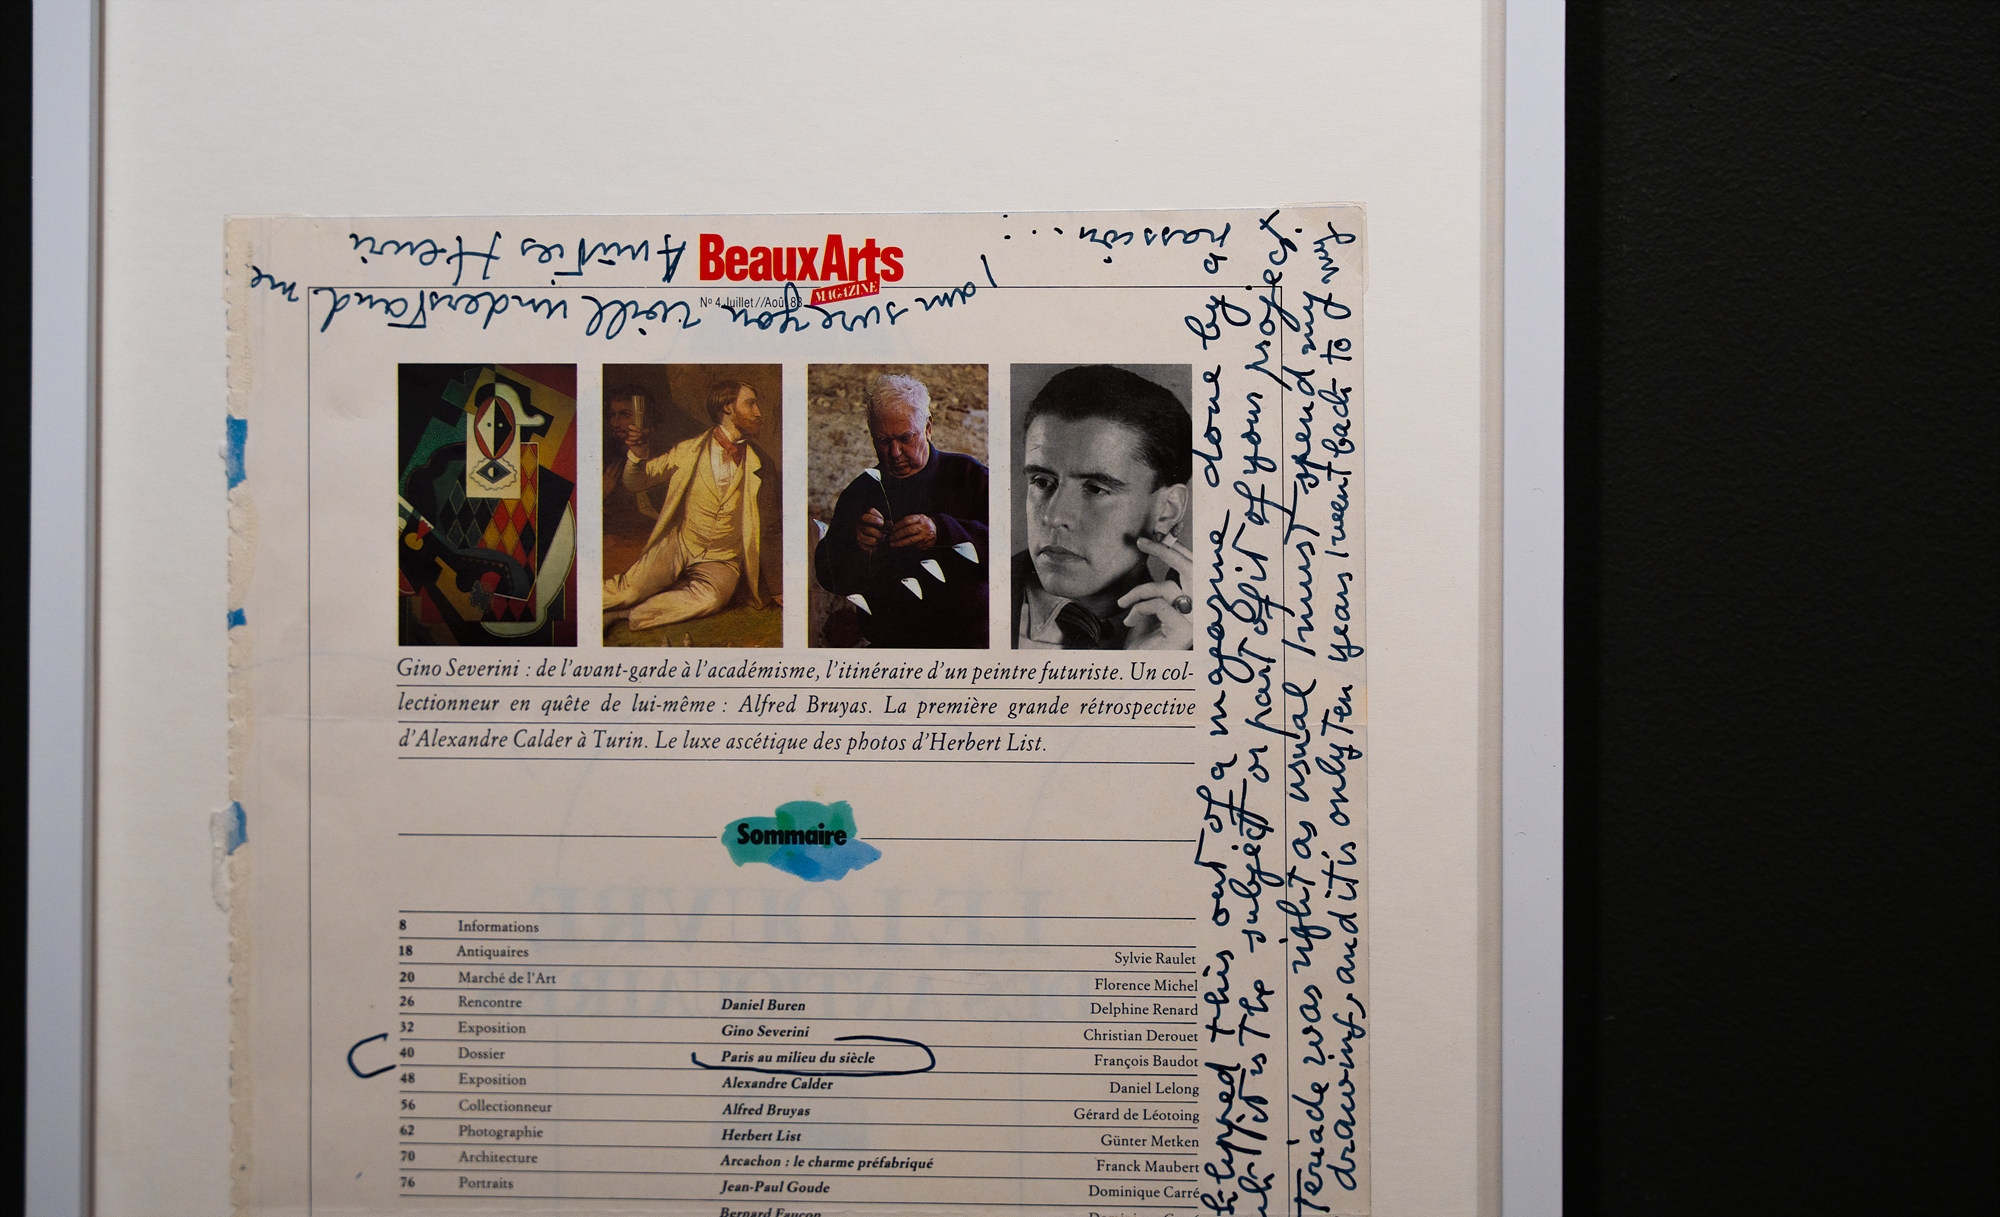 BeauxArts
MAGAZINE
Nº 4 Juillet//Août 83
Gino Severini : de l'avant-garde à l'académisme, l'itinéraire d'un peintre futuriste. Un col-
lectionneur en quête de lui-même : Alfred Bruyas. La première grande rétrospective
d'Alexandre Calder à Turin. Le luxe ascétique des photos d'Herbert List.
Sommaire
8 Informations
18 Antiquaires Sylvie Raulet
20 Marché de l'Art Florence Michel
26 Rencontre Daniel Buren Delphine Renard
32 Exposition Gino Severini Christian Derouet
40 Dossier Paris au milieu du siècle François Baudot
48 Exposition Alexandre Calder Daniel Lelong
56 Collectionneur Alfred Bruyas Gérard de Léotoing
62 Photographie Herbert List Günter Metken
70 Architecture Arcachon : le charme préfabriqué Franck Maubert
76 Portraits Jean-Paul Goude Dominique Carré
Bernard Faucon
this out of a magazine done by a
is the subject or part of it of your project
Tériade was right as usual I must spend my
drawing, and it is only ten years I went back to my
passion...:
I am sure you will understand me
Amitiés Henri